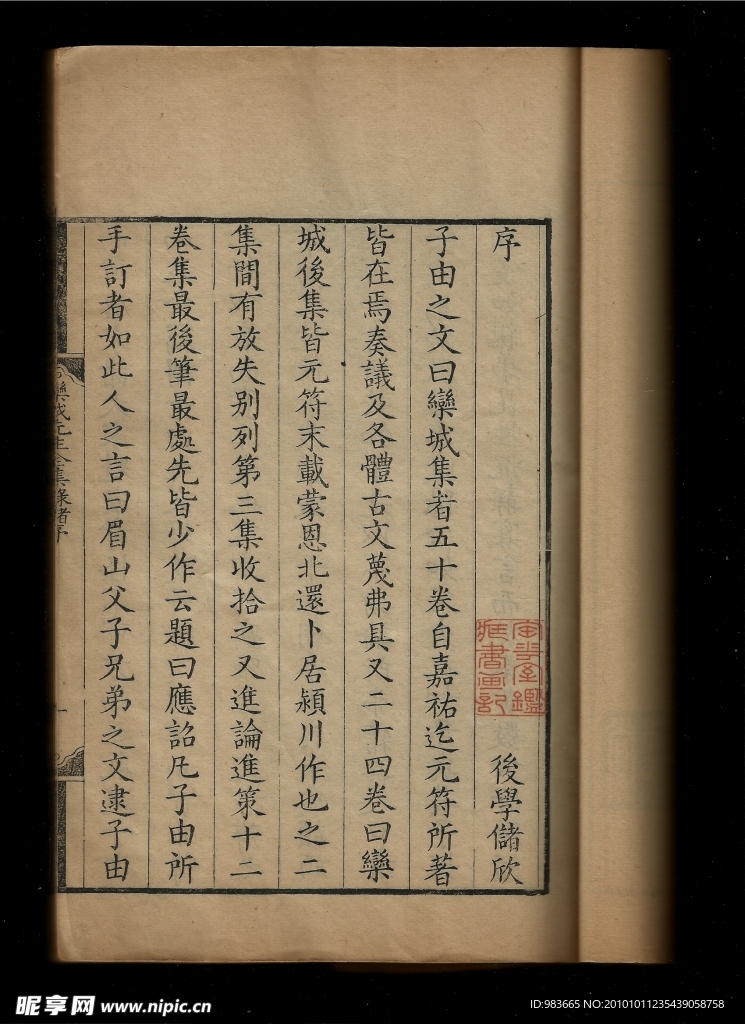 序
後學儲欣
子由之文曰欒城集者五十卷自嘉祐迄元符所著
皆在焉奏議及各體古文蔑弗具又二十四卷曰欒
城後集皆元符末載蒙恩北還卜居潁川作也之二
集間有放失别列第三集收拾之又進論進策十二
卷集最後筆最處先皆少作云題曰應詔凡子由所
手訂者如此人之言曰眉山父子兄弟之文逮子由
昵享网 www.nipic.cn
ID:983665 NO:20101011235439058758